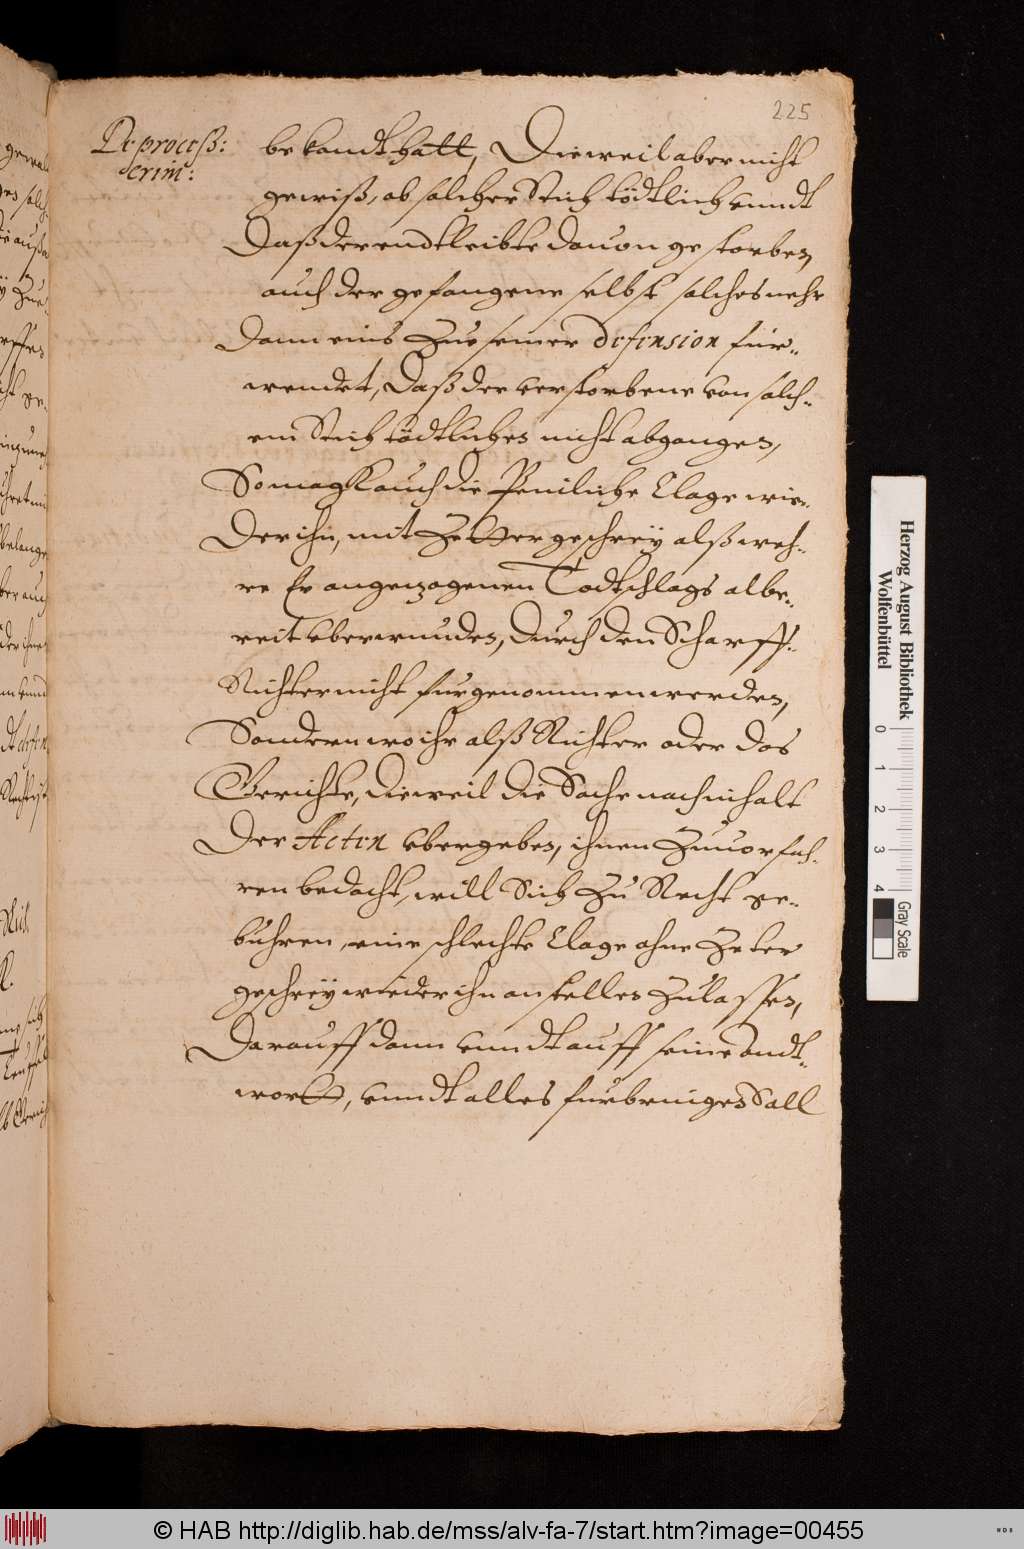 225
De proceß:
crim:
bekandt hatt, Dieweil aber nicht
gewiß, ob solcher Stich tödtlich vnndt
Daß der endtleibte dauon gestorben,
auch der gefangene selbst solches mehr
Dann eins Zue seiner defension für-
wendet, Daß der verstorbene von solch-
em Stich tödtliches nicht abgangen,
So magk auch die Peinliche Clage wie-
der ihn, mit Zettergeschrey alß weh-
re Er angezogenen Todtschlags albe-
reit vberwunden, durch den Scharff-
Richter nicht furgenommen werden,
Sondern wo ihr alß Richter oder das
Gerichte, dieweil die Sache nach inhalt
der Acten vbergeben, ihnen Zuuorfah-
ren bedacht, will Sich Zu Recht ge-
buhren, eine schlechte Clage ohne Zeter
geschrey wieder ihn anstellen Zulassen,
Darauff dann vnndt auff seine Andt-
wortt, vnndt alles furbringen Sall
Herzog August Bibliothek
Wolfenbüttel
0 1 2 3 4
Gray Scale
© HAB http://diglib.hab.de/mss/alv-fa-7/start.htm?image=00455